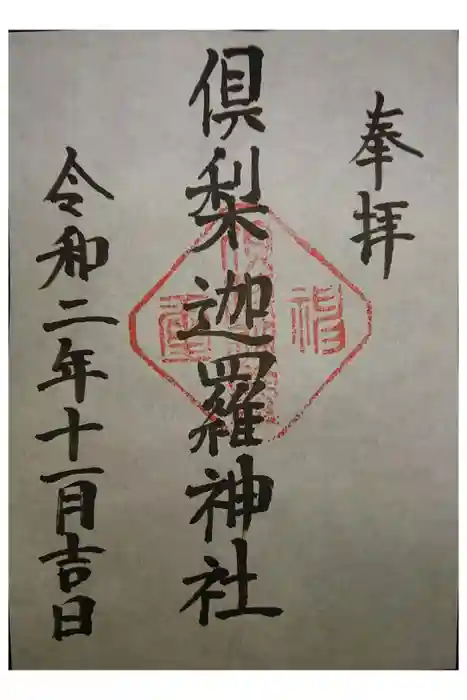 奉拝
倶梨迦羅神社
令和二年十一月吉日